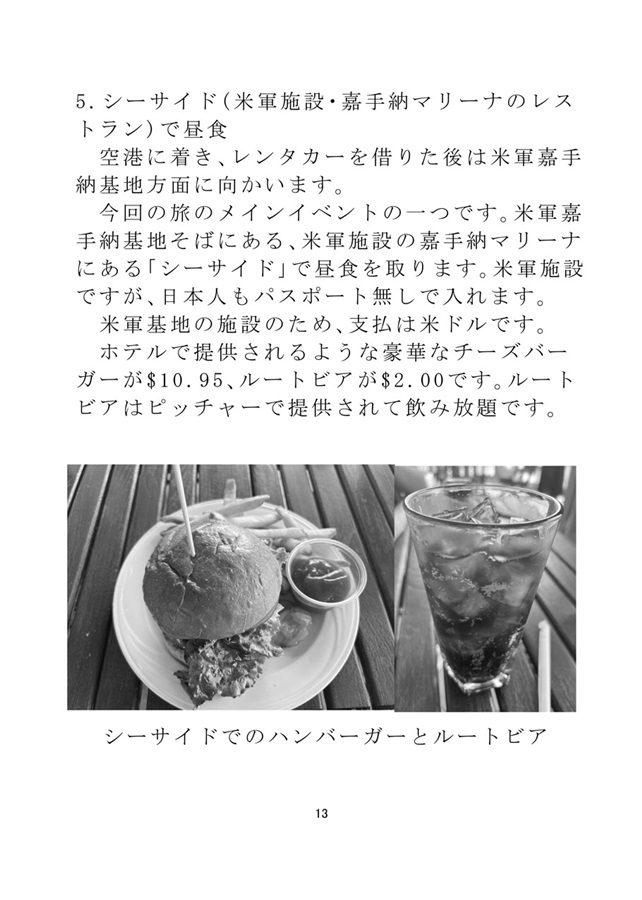 5.シーサイド(米軍施設・嘉手納マリーナのレス
トラン)で昼食
　空港に着き、レンタカーを借りた後は米軍嘉手
納基地方面に向かいます。
　今回の旅のメインイベントの一つです。米軍嘉
手納基地そばにある、米軍施設の嘉手納マリーナ
にある「シーサイド」で昼食を取ります。米軍施設
ですが、日本人もパスポート無しで入れます。
　米軍基地の施設のため、支払は米ドルです。
　ホテルで提供されるような豪華なチーズバー
ガーが$10.95、ルートビアが$2.00です。ルート
ビアはピッチャーで提供されて飲み放題です。
シーサイドでのハンバーガーとルートビア
13